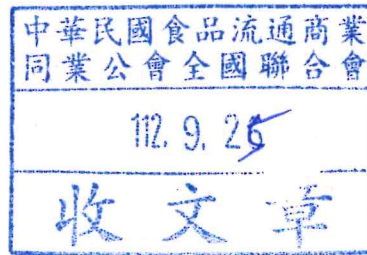 中華民國食品流通商業
同業公會全國聯合會
112. 9. 26
收文章